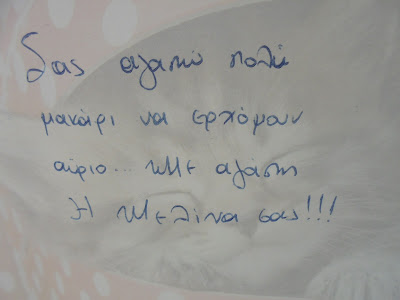 Σας αγαπώ πολύ
μακάρι να ερχόμουν
αύριο... Με αγάπη
Η Μελίνα σας!!!